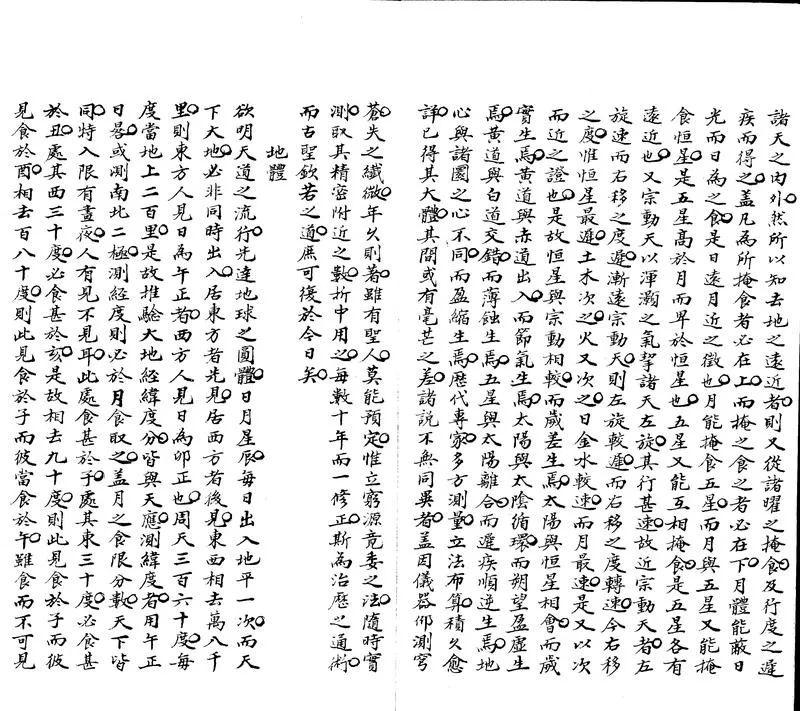 諸天之內外然所以知去地之遠近者則又從諸曜之掩食及行度之遲
疾而得之蓋凡為所掩食者必在上而掩之食之者必在下月體能蔽日
光而日為之食是日遠月近之徵也月能掩食五星而月與五星又能掩
食恒星是五星高於月而卑於恒星也五星又能互相掩食是五星各有
遠近也又宗動天以渾灝之氣挈諸天左旋其行甚速故近宗動天者左
旋速而右移之度遲漸遠宗動天則左旋較遲而右移之度轉速今右移
之度惟恒星最遲土木次之火又次之日金水較速而月最速是又以次
而近之證也是故恒星與宗動相較而歲差生焉太陽與恒星相會而歲
實生焉黃道與赤道出入而節氣生焉太陽與太陰循環而朔望盈虛生
焉黃道與白道交錯而薄蝕生焉五星與太陽離合而遲疾順逆生焉地
心與諸圜之心不同而盈縮生焉歷代專家多方測量立法布算積久愈
詳已得其大體其間或有毫芒之差諸說不無同異者蓋因儀器仰測穹
蒼失之纖微年久則著雖有聖人莫能預定惟立窮源竟委之法隨時實
測取其精密附近之數折中用之每數十年而一修正斯為治歷之通術
而古聖欽若之道庶可復於今日矣
地體
欲明天道之流行先達地球之圓體日月星辰每日出入地平一次而天
下大地必非同時出入居東方者先見居西方者後見東西相去萬八千
里則東方人見日為午正者西方人見日為卯正也周天三百六十度每
度當地上二百里是故推驗大地經緯度分皆與天應測緯度者用午正
日晷或測南北二極測經度則必於月食取之蓋月之食限分數天下皆
同特入限有晝夜人有見不見耳此處食甚於子處其東三十度必食甚
於丑處其西三十度必食甚於亥是故相去九十度則此見食於子而彼
見食於酉相去百八十度則此見食於子而彼當食於午雖食而不可見